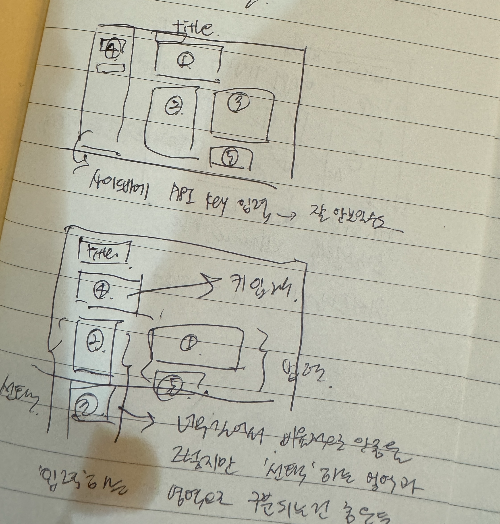 title
④
①
②
③
⑤
사이드바에 API Key 입력 → 잘 안보일수도
title
④ → 키 입력
②
①
⑤
입력
선택
②
그렇지만 '선택'하는 영역과
'입력'하는 영역으로 구분되는건 좋은듯